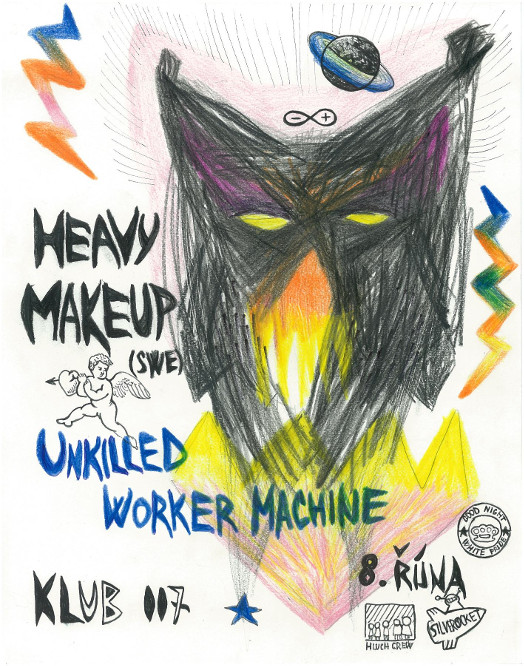 - +
HEAVY
MAKEUP
(SWE)
UNKILLED
WORKER MACHINE
KLUB 007
8. ŘÍJNA
GOOD NIGHT
WHITE PRIDE
HLUCH CREW
SILVER ROCKET